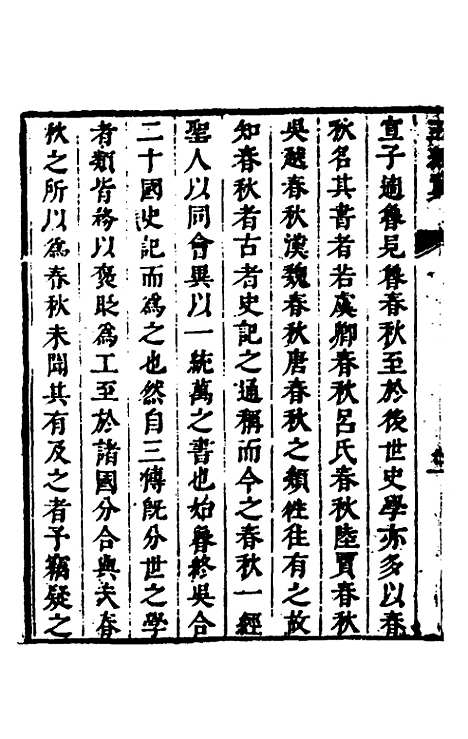 宣子適魯見魯春秋至於後世史學亦多以春
秋名其書者若虞卿春秋呂氏春秋陸賈春秋
吳越春秋漢魏春秋唐春秋之類徃徃有之故
知春秋者古者史記之通稱而今之春秋一經
聖人以同會異以一統萬之書也始魯終吳合
二十國史記而爲之也然自三傳旣分世之學
者類皆務以褒貶爲工至於諸國分合與夫春
秋之所以爲春秋未聞其有及之者予竊疑之